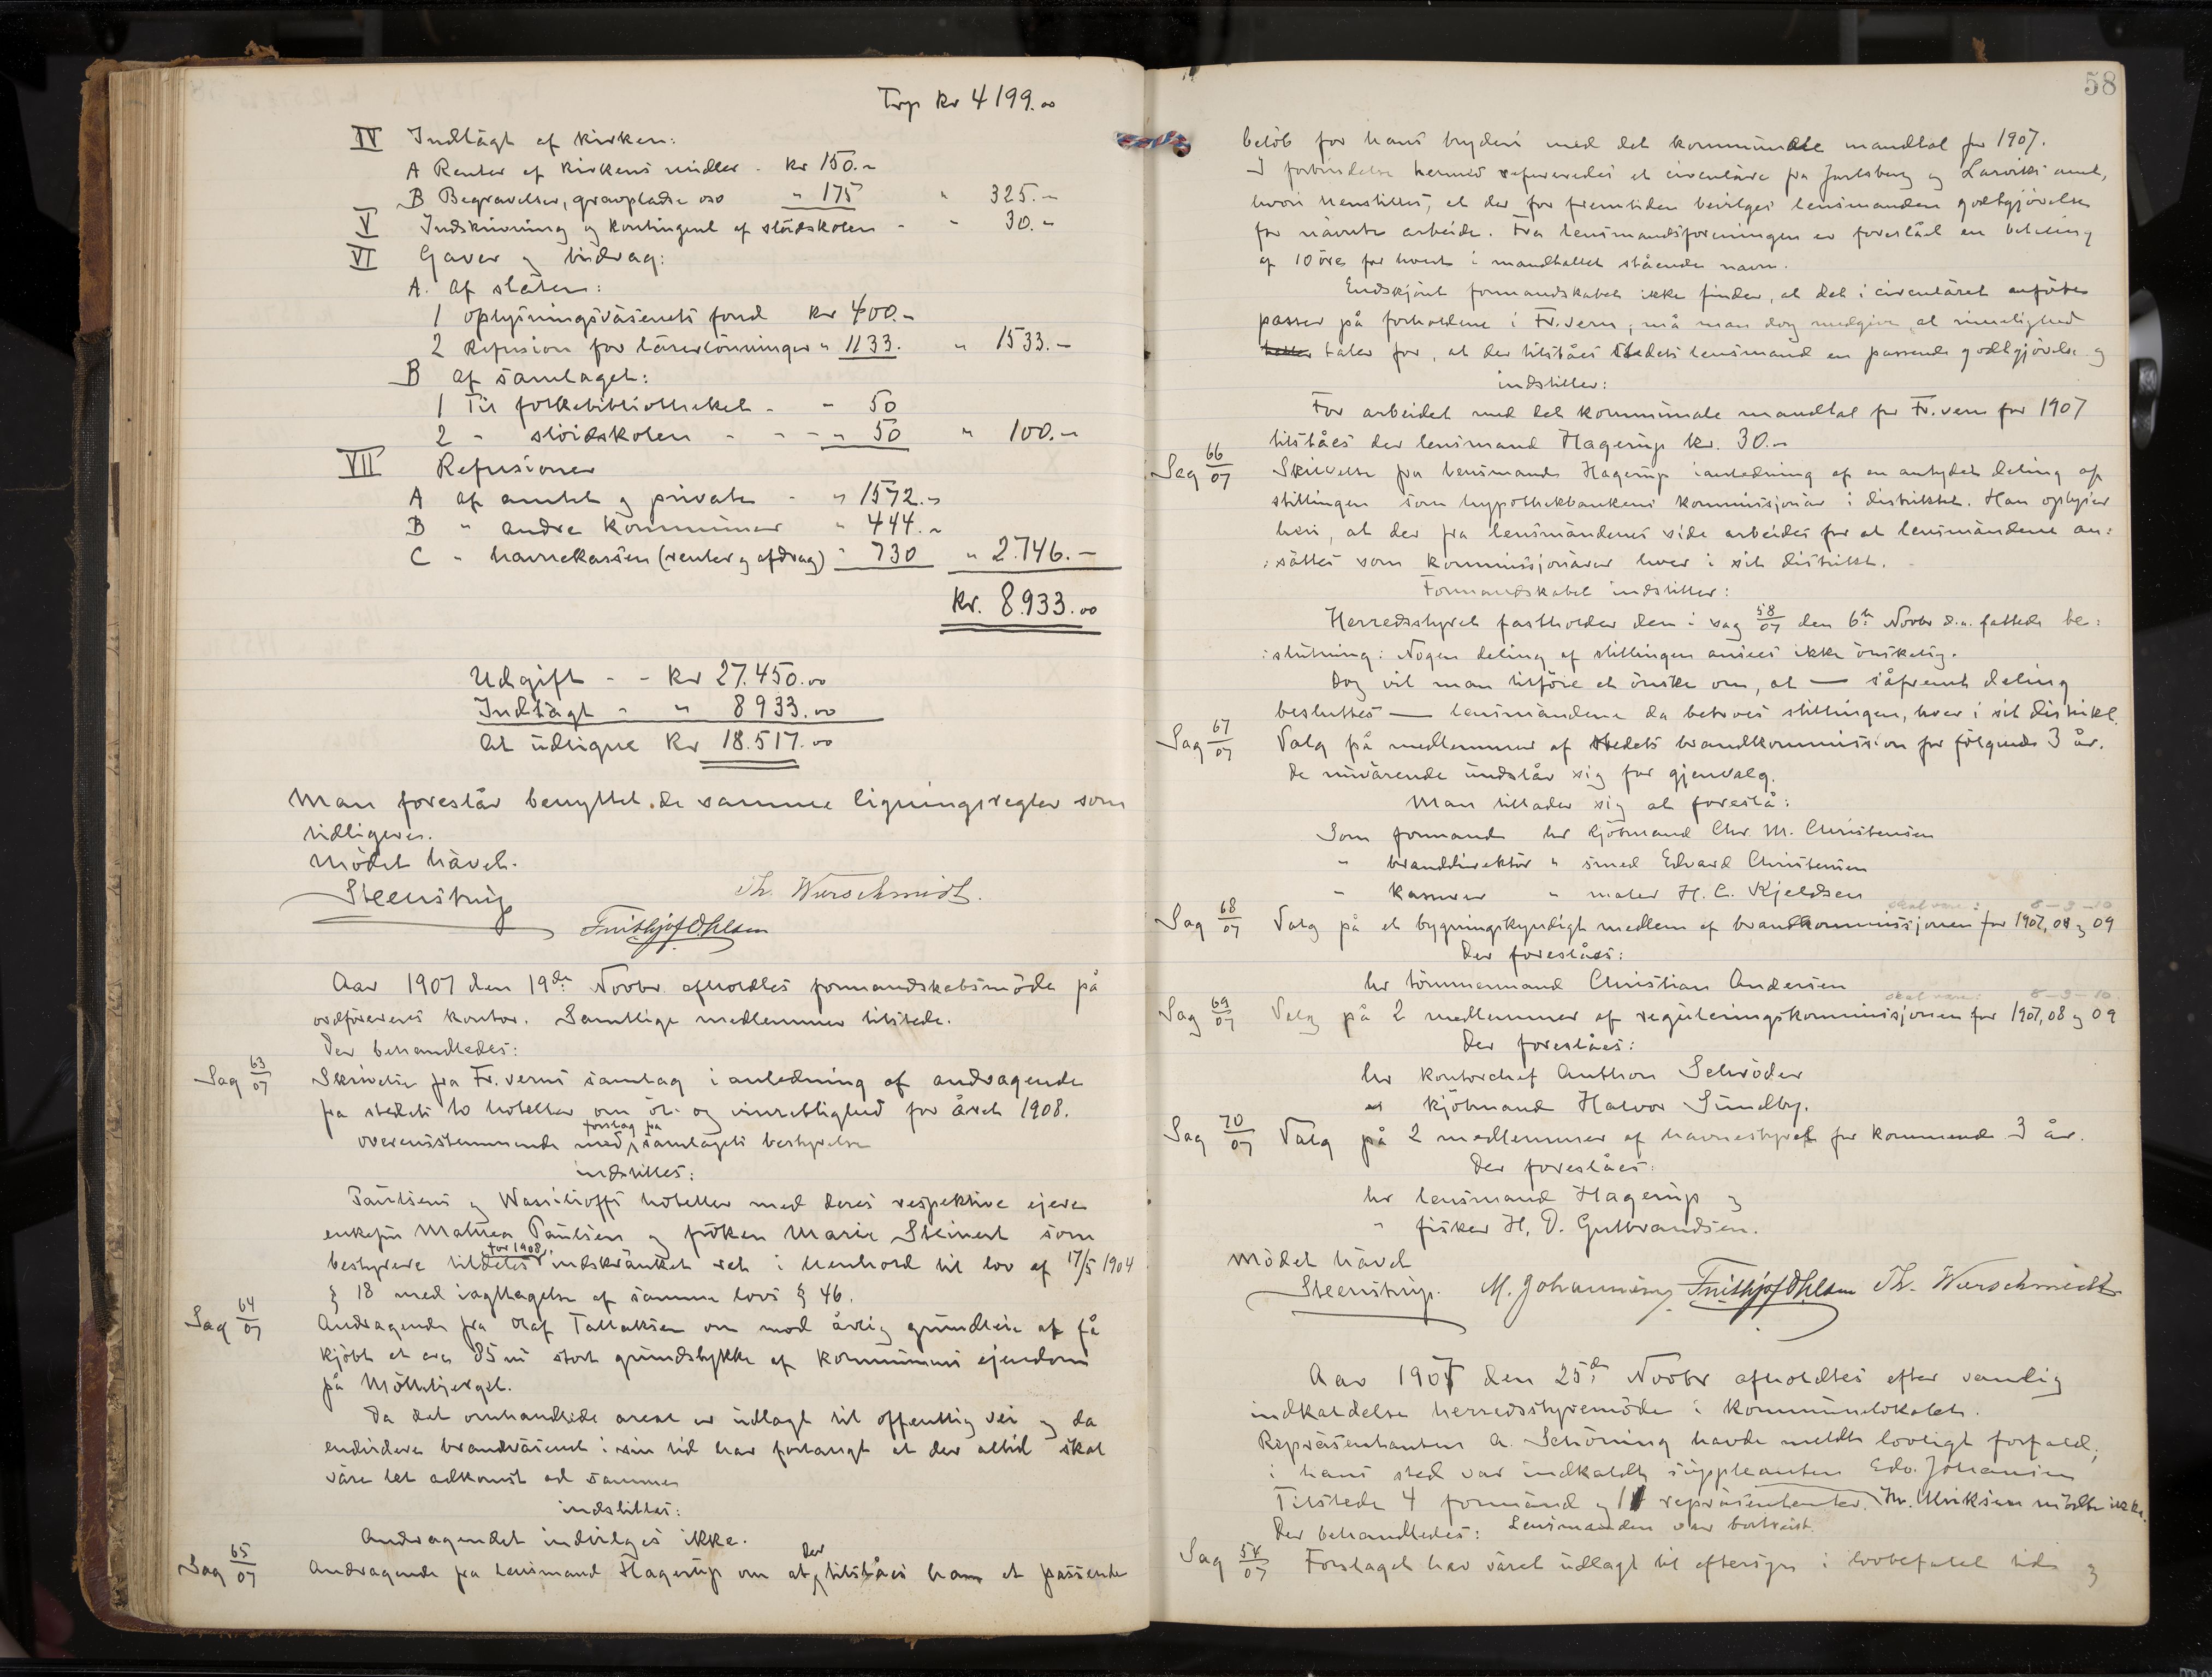 Trp kr 4199.00
IV Indtägt af kirken:
A Renter af kirkens midler - kr 150.-
B Begravelser, gravpladse oso " 175 " 325.-
V Indskrivning og kontingent af slöidskolen - - 30.-
VI Gaver og bidrag:
A. af staten:
1 oplysningsväsenets fond kr 400.-
2 Refusion for lärerlönninger " 1133. " 1533.-
B af samlaget:
1 Til folkebibliotheket - - 50
2 - slöidskolen - - - " 50 " 100.-
VII Refusioner
A af amtet og private - " 1572.-
B " andre kommuner " 444.-
C - havnekassen (renter og afdrag) - 730 " 2.746.-
kr. 8.933.00
Udgift - - kr 27.450.00
Indtägt - " 8933.00
At udligne kr 18.517.00
Man foreslår benyttet de samme ligningsregler som
tidligere.
Mödet hävet.
Steenstrup Th. Wurschmidt.
Frithjof Ohlsen
Aar 1907 den 19de Novbr. afholdtes formandskabsmöde på
ordförerens kontor. Samtlige medlemmer tilstede.
Der behandledes:
Sag 63/07 Skrivelse fra Fr.verns samlag i anledning af andragende
fra stedets to hoteller om öl- og vinrettighed for året 1908.
overensstemmende med forslag fra samlagets bestyrelse
indstilles:
Paulsens og Wassilioffs hoteller med deres respektive ejere
enkefru Mathea Paulsen og fröken Marie Steinert som
bestyrere tildeles for 1908 indskränket ret i henhold til lov af 17/5 1904
§ 18 med iagttagelse af samme lovs § 46.
Sag 64/07 Andragende fra Olaf Tallaksen om mod årlig grundleie at få
kjöbt et ca 85 m stort grundstykke af kommunens ejendom
på Möllebjerget.
Da det omhandlede areal er udlagt til offentlig vei og da
endvidere brandväsenet i sin tid har forlangt at der altid skal
väre let adkomst ad samme
indstilles:
Andragendet indvilges ikke.
Sag 65/07 Andragende fra lensmand Hagerup om at der tilståes ham et passende
58
belöb for hans bryderi med det kommunale mandtal for 1907.
I forbindelse hermed refereredes et circuläre fra Jarlsberg og Larviks amt,
hvori henstilles, at der for fremtiden bevilges lensmanden godtgjörelse
for nävnte arbeide. Fra lensmandsforeningen er foreslået en betaling
af 10 öre for hvert i mandtallet stående navn.
Endskjönt formandskabet ikke finder, at det i circuläret anförte
passer på forholdene i Fr.vern, må man dog medgive, at rimelighed
taler for, at der tilståes stedets lensmand en passende godtgjörelse og
indstiller:
For arbeidet med det kommunale mandtal for Fr.vern for 1907
tilståes der lensmand Hagerup kr. 30.-
Sag 66/07 Skrivelse fra lensmand Hagerup i anledning af en antydet deling af
stillingen som hypothekbankens kommissjonär i distriktet. Han oplyser
heri, at der fra lensmändenes side arbeides for at lensmändene an:
:sättes som kommissjonärer hver i sit distrikt.
Formandskabet indstiller:
Herredsstyret fastholder den i sag 58/07 den 6te Novbr d.a. fattede be:
:slutning: Nogen deling af stillingen ansees ikke önskelig.
Dog vil man tilföie et önske om, at — såfremt deling
besluttes — lensmändene da betroes stillingen, hver i sit distrikt.
Sag 67/07 Valg på medlemmer af stedets brandkommission for fölgende 3 år.
De nuvärende undslår sig for gjenvalg.
Man tillader sig at foreslå:
Som formand hr kjöbmand Chr. M. Christensen
" branddirektör " smed Edvard Christensen
" kasserer " maler H. C. Kjeldsen
skal väre: 8-9-10
Sag 68/07 Valg på et bygningskyndigt medlem af brandkommissjonen for 1907, 08 og 09
Der foreslåes:
hr tömmermand Christian Andersen
skal väre: 8-9-10.
Sag 69/07 Valg på 2 medlemmer af reguleringskommissjonen for 1907, 08 og 09
Der foreslåes:
hr kontorchef Anthon Schröder
" kjöbmand Halvor Sundby.
Sag 70/07 Valg på 2 medlemmer af havnestyret for kommende 3 år.
Der foreslåes:
hr lensmand Hagerup og
" fisker H. D. Gulbrandsen.
Mödet hävet
Steenstrup. M. Johannesen Frithjof Ohlsen Th. Wurschmidt
Aar 1907 den 25de Novbr afholdtes efter vanlig
indkaldelse herredsstyremöde i kommunelokalet.
Repräsentanten A. Schöning havde meldt lovligt forfald,
i hans sted var indkaldt suppleanten Edv. Johansen
Tilstede 4 formänd og 11 repräsentanter. Hr. Ulriksen mödte ikke.
Der behandledes: Lensmanden var bortreist.
Sag 54/07 Forslaget har väret udlagt til eftersyn i lovbefalet tid og